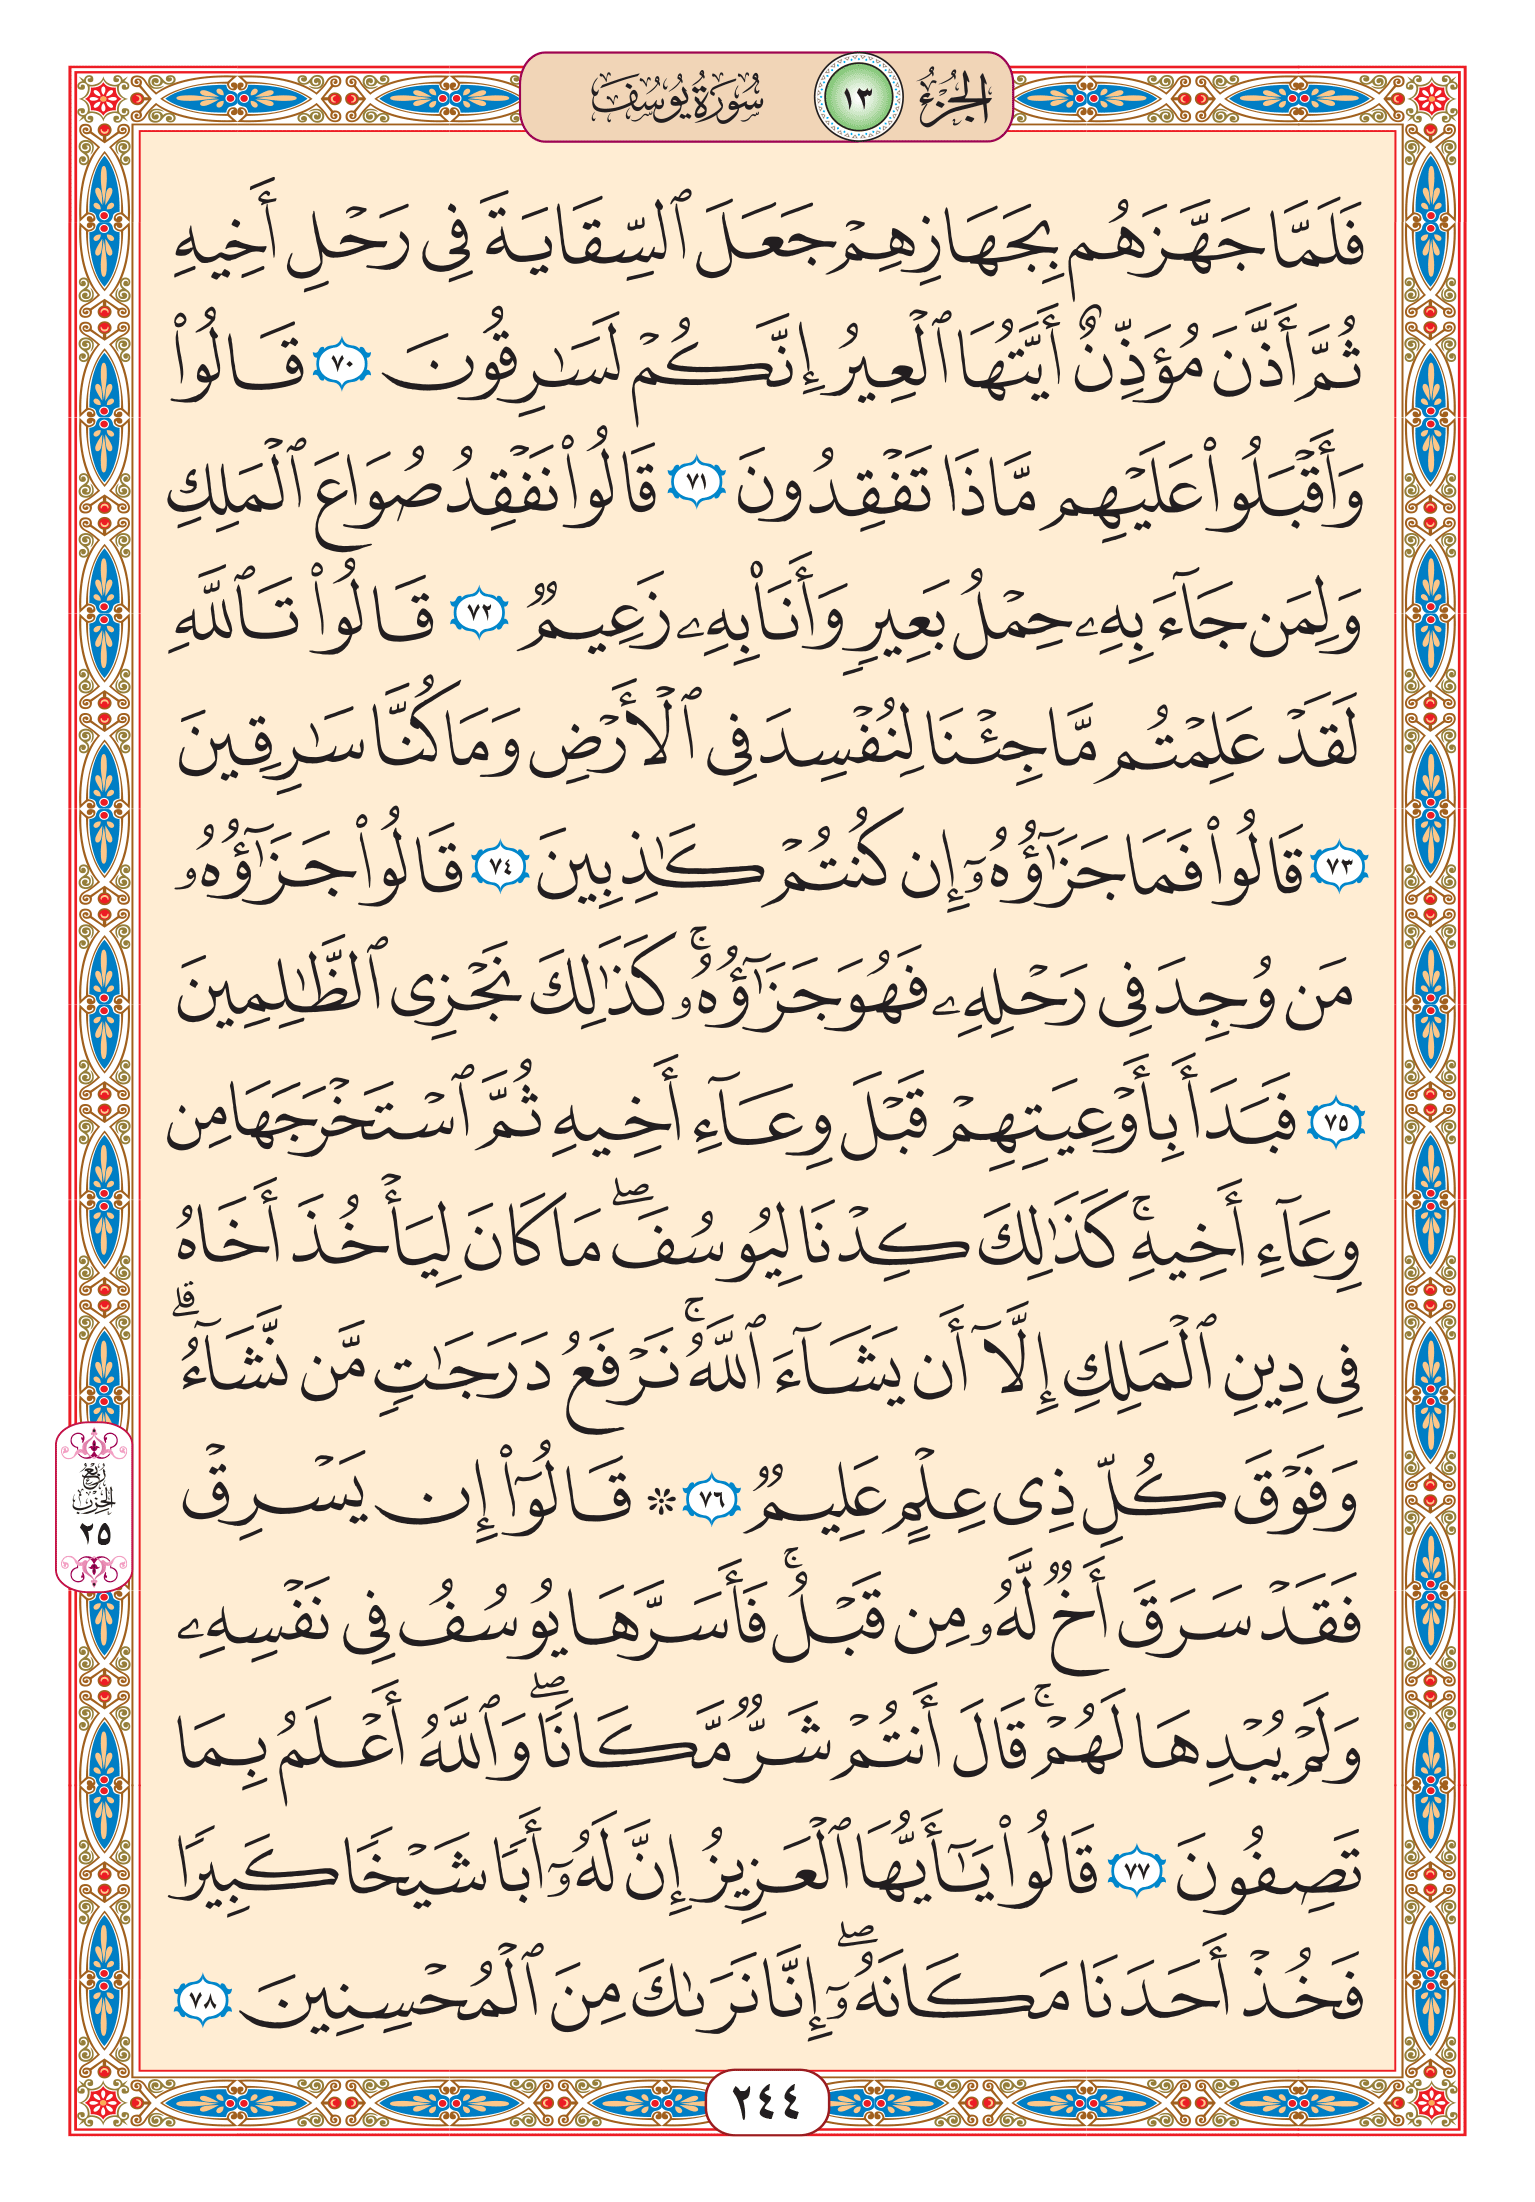 الجُزْءُ ١٣ سُورَةُ يُوسُفَ
فَلَمَّا جَهَّزَهُم بِجَهَازِهِمۡ جَعَلَ ٱلسِّقَايَةَ فِى رَحۡلِ أَخِيهِ
ثُمَّ أَذَّنَ مُؤَذِّنٌ أَيَّتُهَا ٱلۡعِيرُ إِنَّكُمۡ لَسَٰرِقُونَ ٧٠ قَالُواْ
وَأَقۡبَلُواْ عَلَيۡهِم مَّاذَا تَفۡقِدُونَ ٧١ قَالُواْ نَفۡقِدُ صُوَاعَ ٱلۡمَلِكِ
وَلِمَن جَآءَ بِهِۦ حِمۡلُ بَعِيرٖ وَأَنَا۠ بِهِۦ زَعِيمٞ ٧٢ قَالُواْ تَٱللَّهِ
لَقَدۡ عَلِمۡتُم مَّا جِئۡنَا لِنُفۡسِدَ فِى ٱلۡأَرۡضِ وَمَا كُنَّا سَٰرِقِينَ
٧٣ قَالُواْ فَمَا جَزَٰٓؤُهُۥٓ إِن كُنتُمۡ كَٰذِبِينَ ٧٤ قَالُواْ جَزَٰٓؤُهُۥ
مَن وُجِدَ فِى رَحۡلِهِۦ فَهُوَ جَزَٰٓؤُهُۥۚ كَذَٰلِكَ نَجۡزِى ٱلظَّٰلِمِينَ
٧٥ فَبَدَأَ بِأَوۡعِيَتِهِمۡ قَبۡلَ وِعَآءِ أَخِيهِ ثُمَّ ٱسۡتَخۡرَجَهَا مِن
وِعَآءِ أَخِيهِۚ كَذَٰلِكَ كِدۡنَا لِيُوسُفَۖ مَا كَانَ لِيَأۡخُذَ أَخَاهُ
فِى دِينِ ٱلۡمَلِكِ إِلَّآ أَن يَشَآءَ ٱللَّهُۚ نَرۡفَعُ دَرَجَٰتٖ مَّن نَّشَآءُۗ
وَفَوۡقَ كُلِّ ذِى عِلۡمٍ عَلِيمٞ ٧٦ ۞ قَالُوٓاْ إِن يَسۡرِقۡ
رُبْعُ الحِزْبِ ٢٥
فَقَدۡ سَرَقَ أَخٞ لَّهُۥ مِن قَبۡلُۚ فَأَسَرَّهَا يُوسُفُ فِى نَفۡسِهِۦ
وَلَمۡ يُبۡدِهَا لَهُمۡۚ قَالَ أَنتُمۡ شَرّٞ مَّكَانٗاۖ وَٱللَّهُ أَعۡلَمُ بِمَا
تَصِفُونَ ٧٧ قَالُواْ يَٰٓأَيُّهَا ٱلۡعَزِيزُ إِنَّ لَهُۥٓ أَبٗا شَيۡخٗا كَبِيرٗا
فَخُذۡ أَحَدَنَا مَكَانَهُۥٓۖ إِنَّا نَرَىٰكَ مِنَ ٱلۡمُحۡسِنِينَ ٧٨
٢٤٤